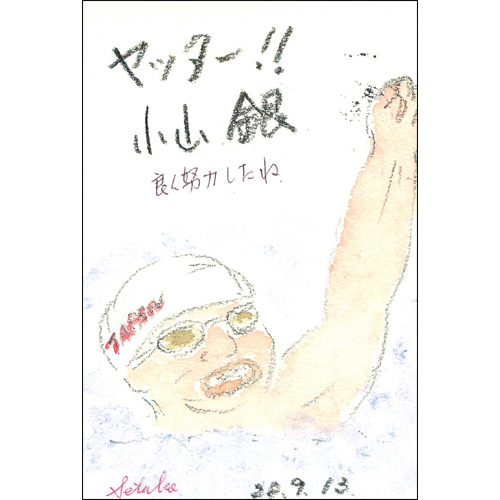 ヤッター!!
小山 銀
良く努力したね
JAPAN
Setuko
20.9.13.